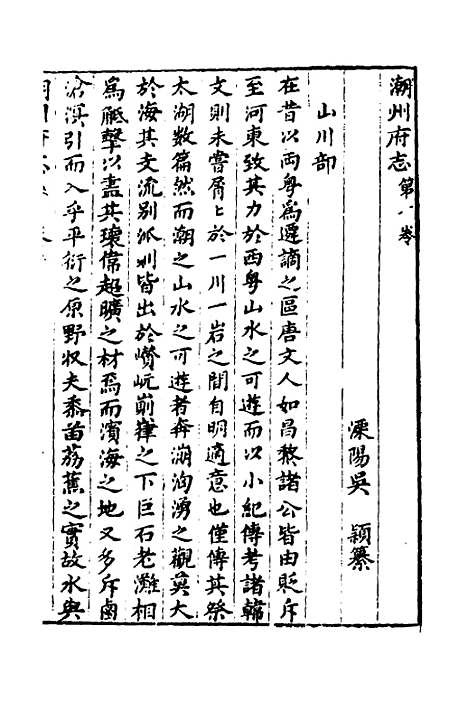 潮州府志第八卷
溧陽吳　穎纂
山川部
在昔以両粤為遷謫之區唐文人如昌黎諸公皆由貶斥
至河東致其力於西粤山水之可遊而以小紀傳考諸韓
文則未嘗屑屑於一川一岩之間自明適意也僅傳其祭
太湖數篇然而潮之山水之可遊者奔湍洶湧之觀莫大
於海其支流別派則皆出於巑岏崱嵂之下巨石老灘相
為觝擊以盡其瓌偉超曠之材焉而濱海之地又多斥鹵
滄溟引而入乎平衍之原野牧夫黍苗荔蕉之實故水與